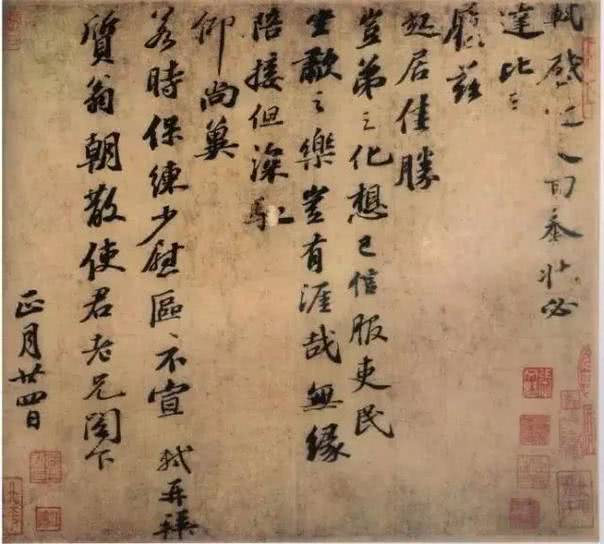 軾啟近人回奉狀必
達比日
履茲
起居佳勝
豈弟之化想已信服吏民
坐歗之樂豈有涯哉無緣
陪接但深馳
仰尚冀
若時保練少慰區區不宣 軾再拜
質翁朝散使君老兄閤下
正月廿四日